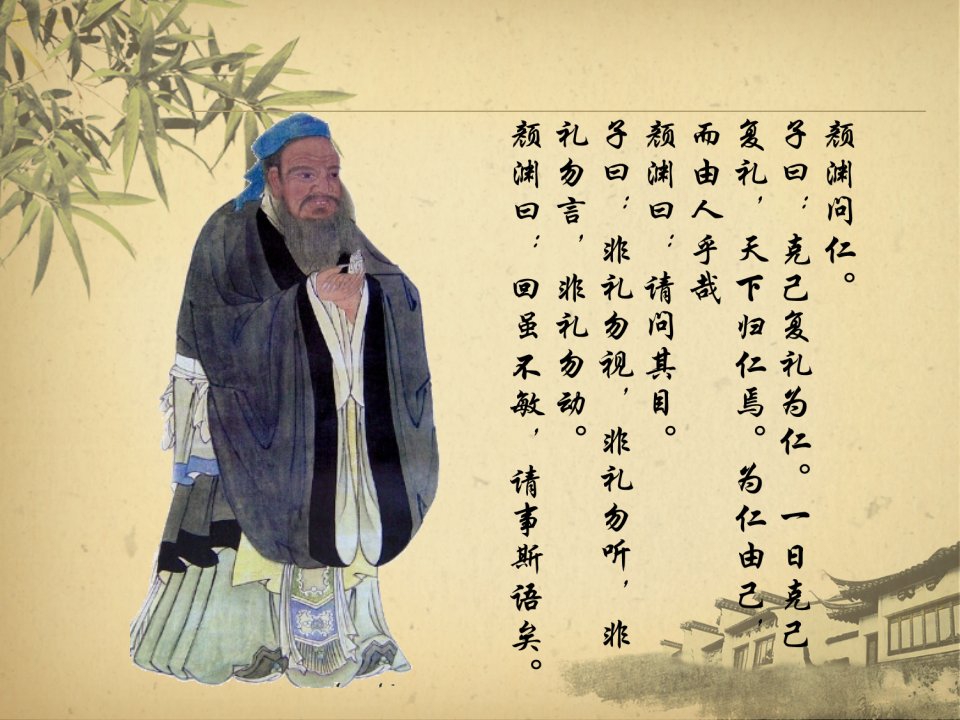 颜渊问仁。
子曰：克己复礼为仁。一日克己
复礼，天下归仁焉。为仁由己，
而由人乎哉
颜渊曰：请问其目。
子曰：非礼勿视，非礼勿听，非
礼勿言，非礼勿动。
颜渊曰：回虽不敏，请事斯语矣。